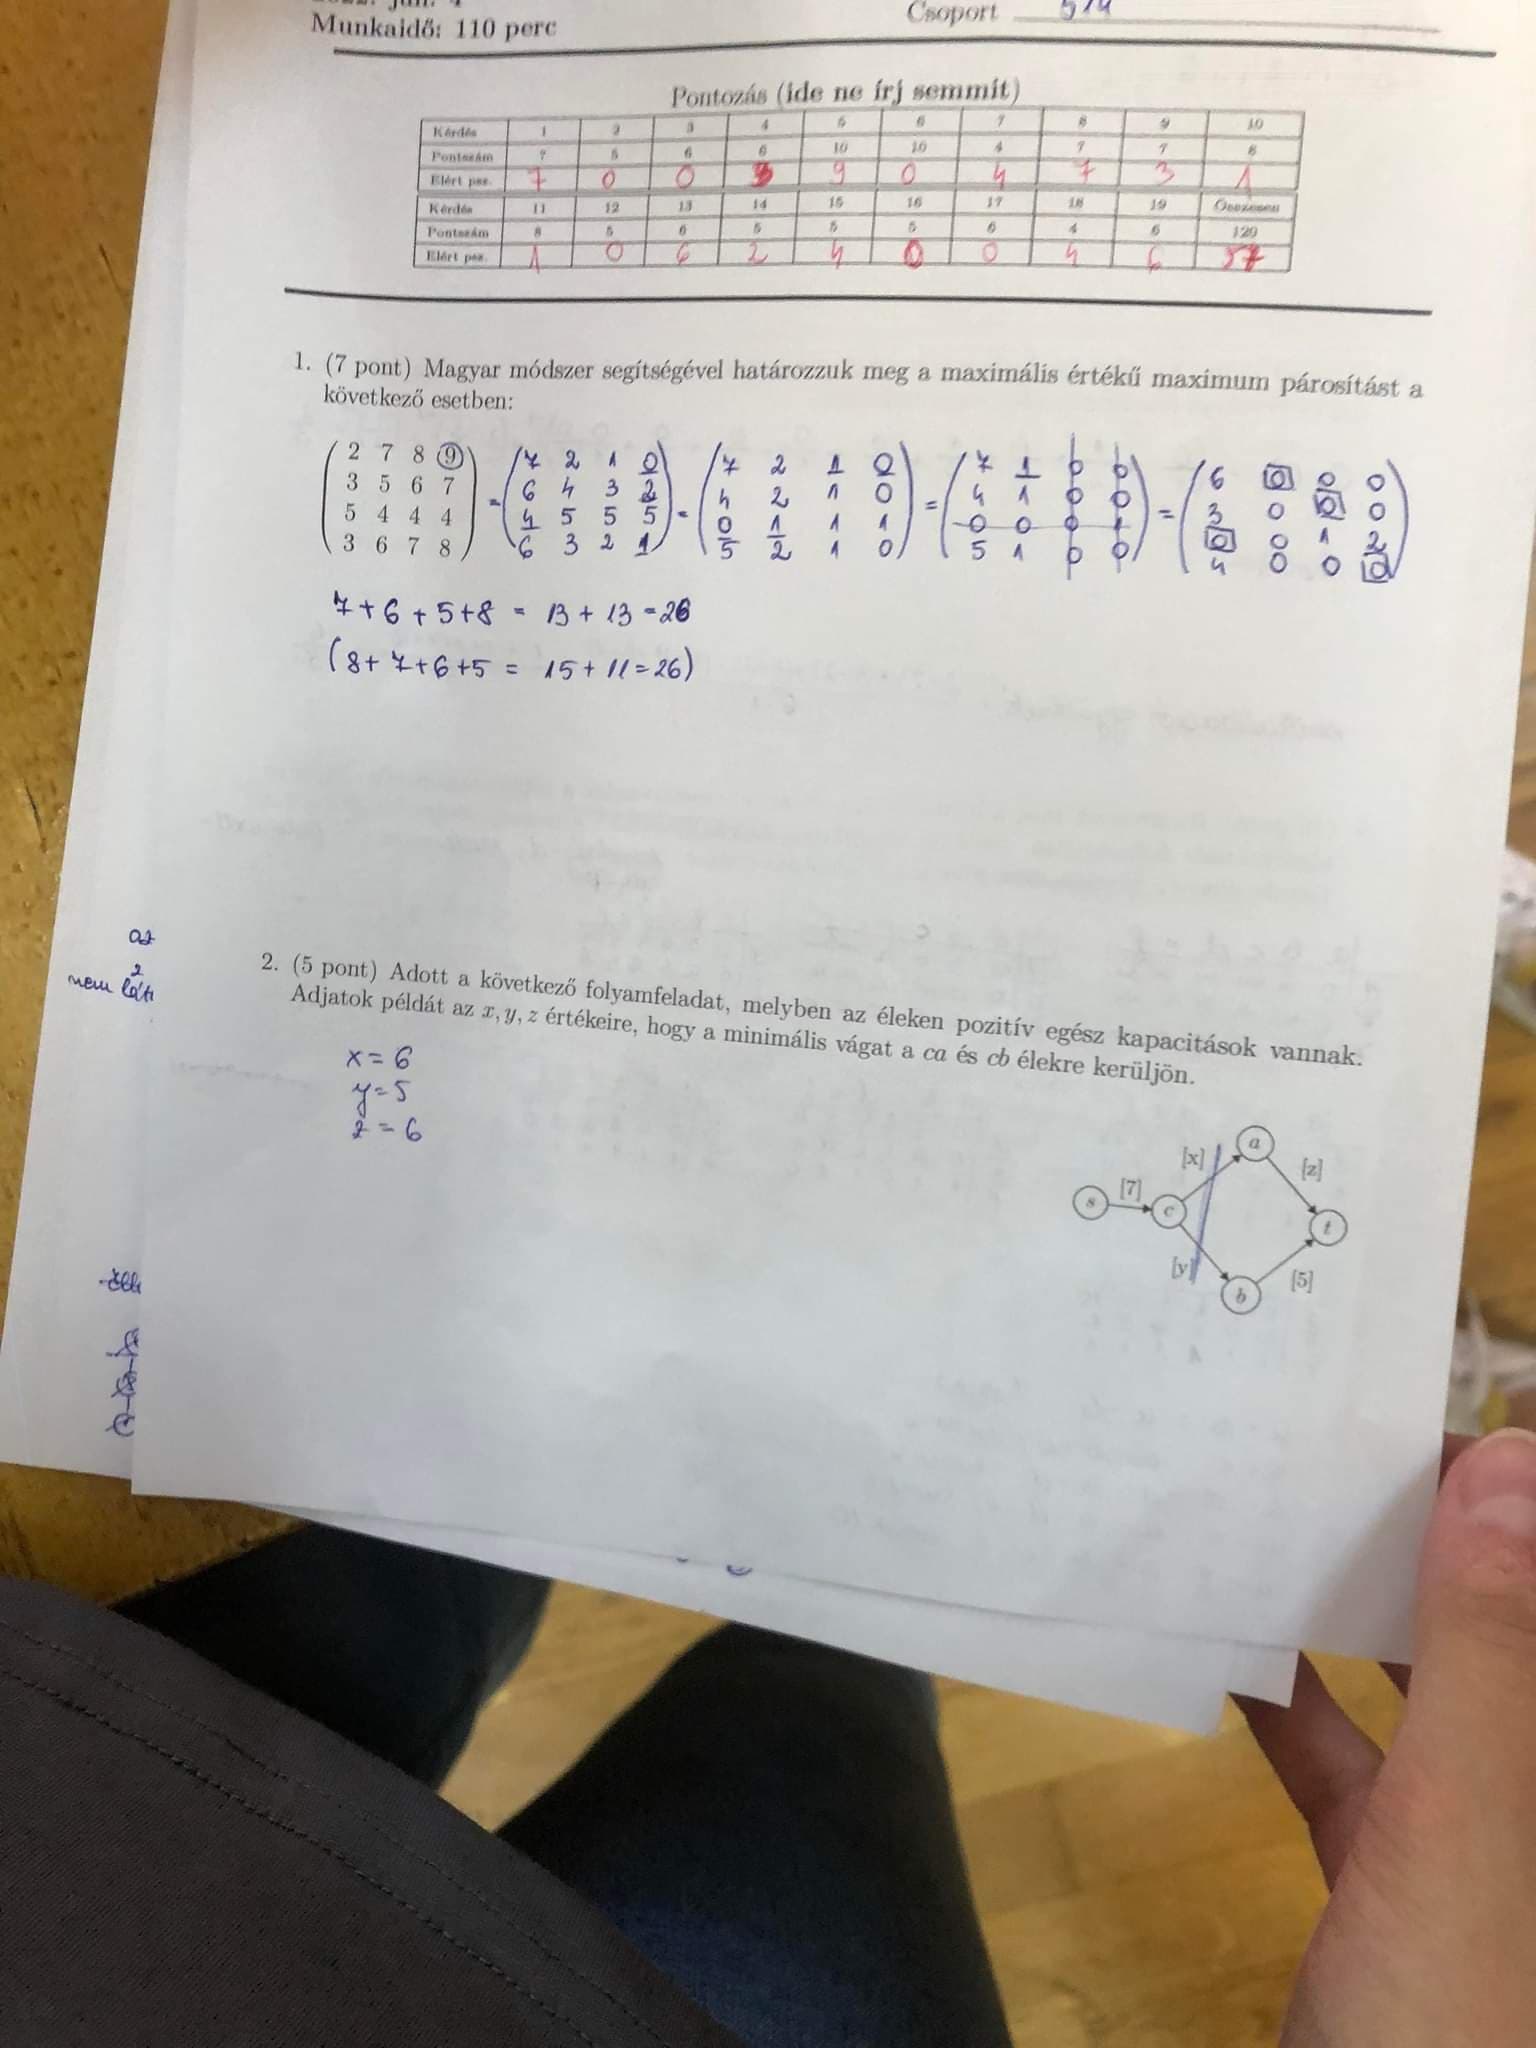 Munkaidő: 110 perc
Csoport
Pontozás (ide ne írj semmit)
Kérdés 1 2 3 4 5 6 7 8 9 10
Pontszám 7 5 6 6 10 10 4 7 7 8
Elért psz. 7 0 0 3 9 0 4 7 3 1
Kérdés 11 12 13 14 15 16 17 18 19 Összesen
Pontszám 8 5 6 5 5 5 6 4 6 120
Elért psz. 1 0 6 2 4 0 0 4 6 57
1. (7 pont) Magyar módszer segítségével határozzuk meg a maximális értékű maximum párosítást a
következő esetben:
2 7 8 9 = 7 2 1 0 = 7 2 1 0 = 7 1 0 0 = 6 0 0 0
3 5 6 7 6 4 3 2 4 2 1 0 4 1 0 0 3 0 0 0
5 4 4 4 4 5 5 5 0 1 1 1 0 0 0 1 0 0 1 2
3 6 7 8 6 3 2 1 5 2 1 0 5 1 0 0 4 0 0 0
7+6+5+8 = 13+13=26
(8+7+6+5 = 15+11=26)
az
2
nem
2. (5 pont) Adott a következő folyamfeladat, melyben az éleken pozitív egész kapacitások vannak.
Adjatok példát az x, y, z értékeire, hogy a minimális vágat a ca és cb élekre kerüljön.
x=6
y=5
z=6
a
[x] [z]
s [7] c t
[y] [5]
b